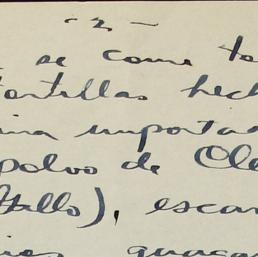 -2-
se come to
tortillas hech
ina importad
polvo de Ole
Otello), escar
guaca